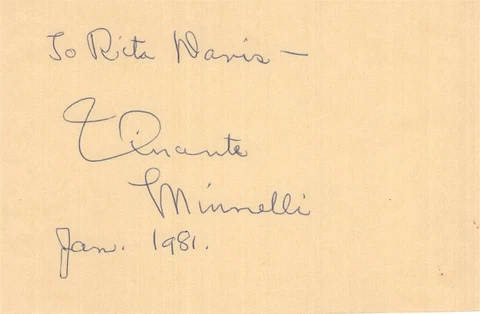 To Rita Davis —
Vincente
Minnelli
Jan. 1981.